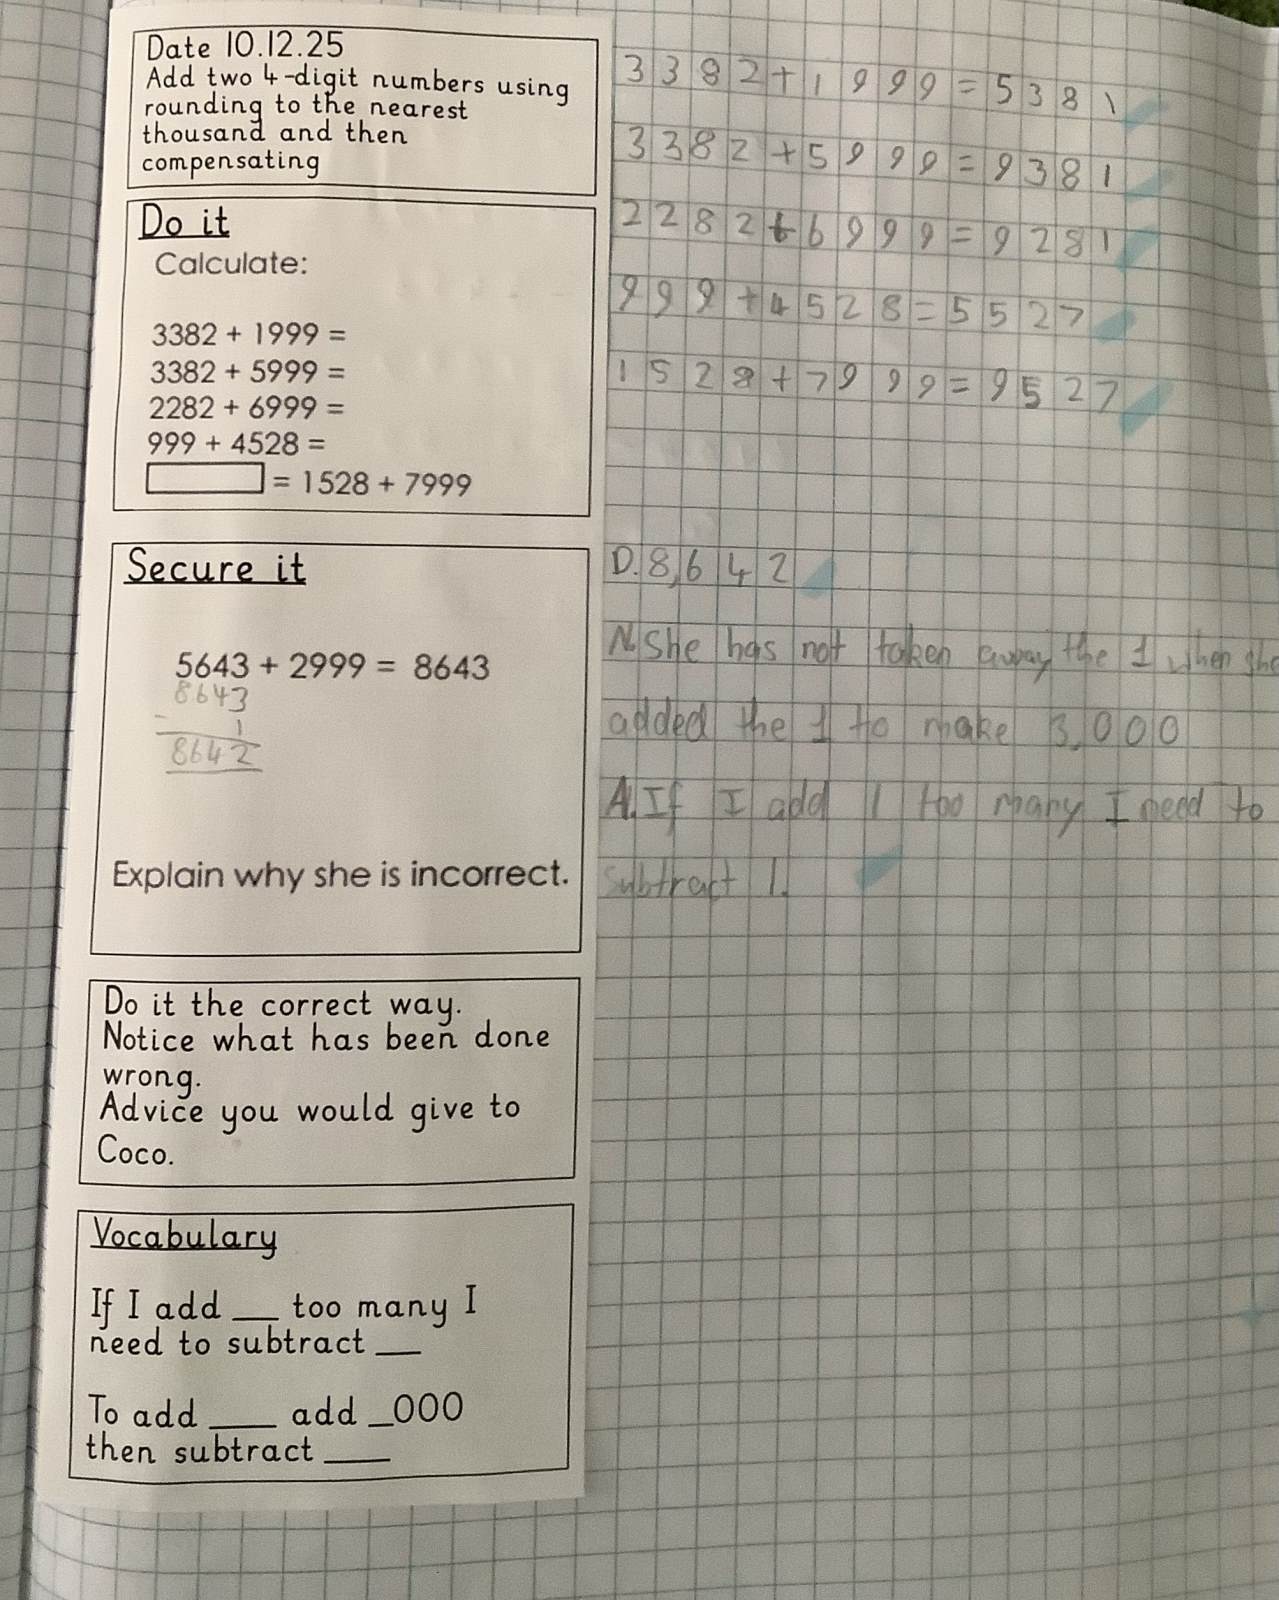 Date 10.12.25
Add two 4-digit numbers using
rounding to the nearest
thousand and then
compensating
Do it
Calculate:
3382 + 1999 =
3382 + 5999 =
2282 + 6999 =
999 + 4528 =
= 1528 + 7999
Secure it
5643 + 2999 = 8643
8643
- 1
8642
Explain why she is incorrect.
Do it the correct way.
Notice what has been done
wrong.
Advice you would give to
Coco.
Vocabulary
If I add ___ too many I
need to subtract ___
To add ____ add _000
then subtract ____
3382+1999=5381
3382+5999=9381
2282+6999=9281
999+4528=5527
1528+7999=9527
D. 8,642
N. She has not taken away the 1 when she
added the 1 to make 3,000
A. If I add 1 too many I need to
subtract 1.